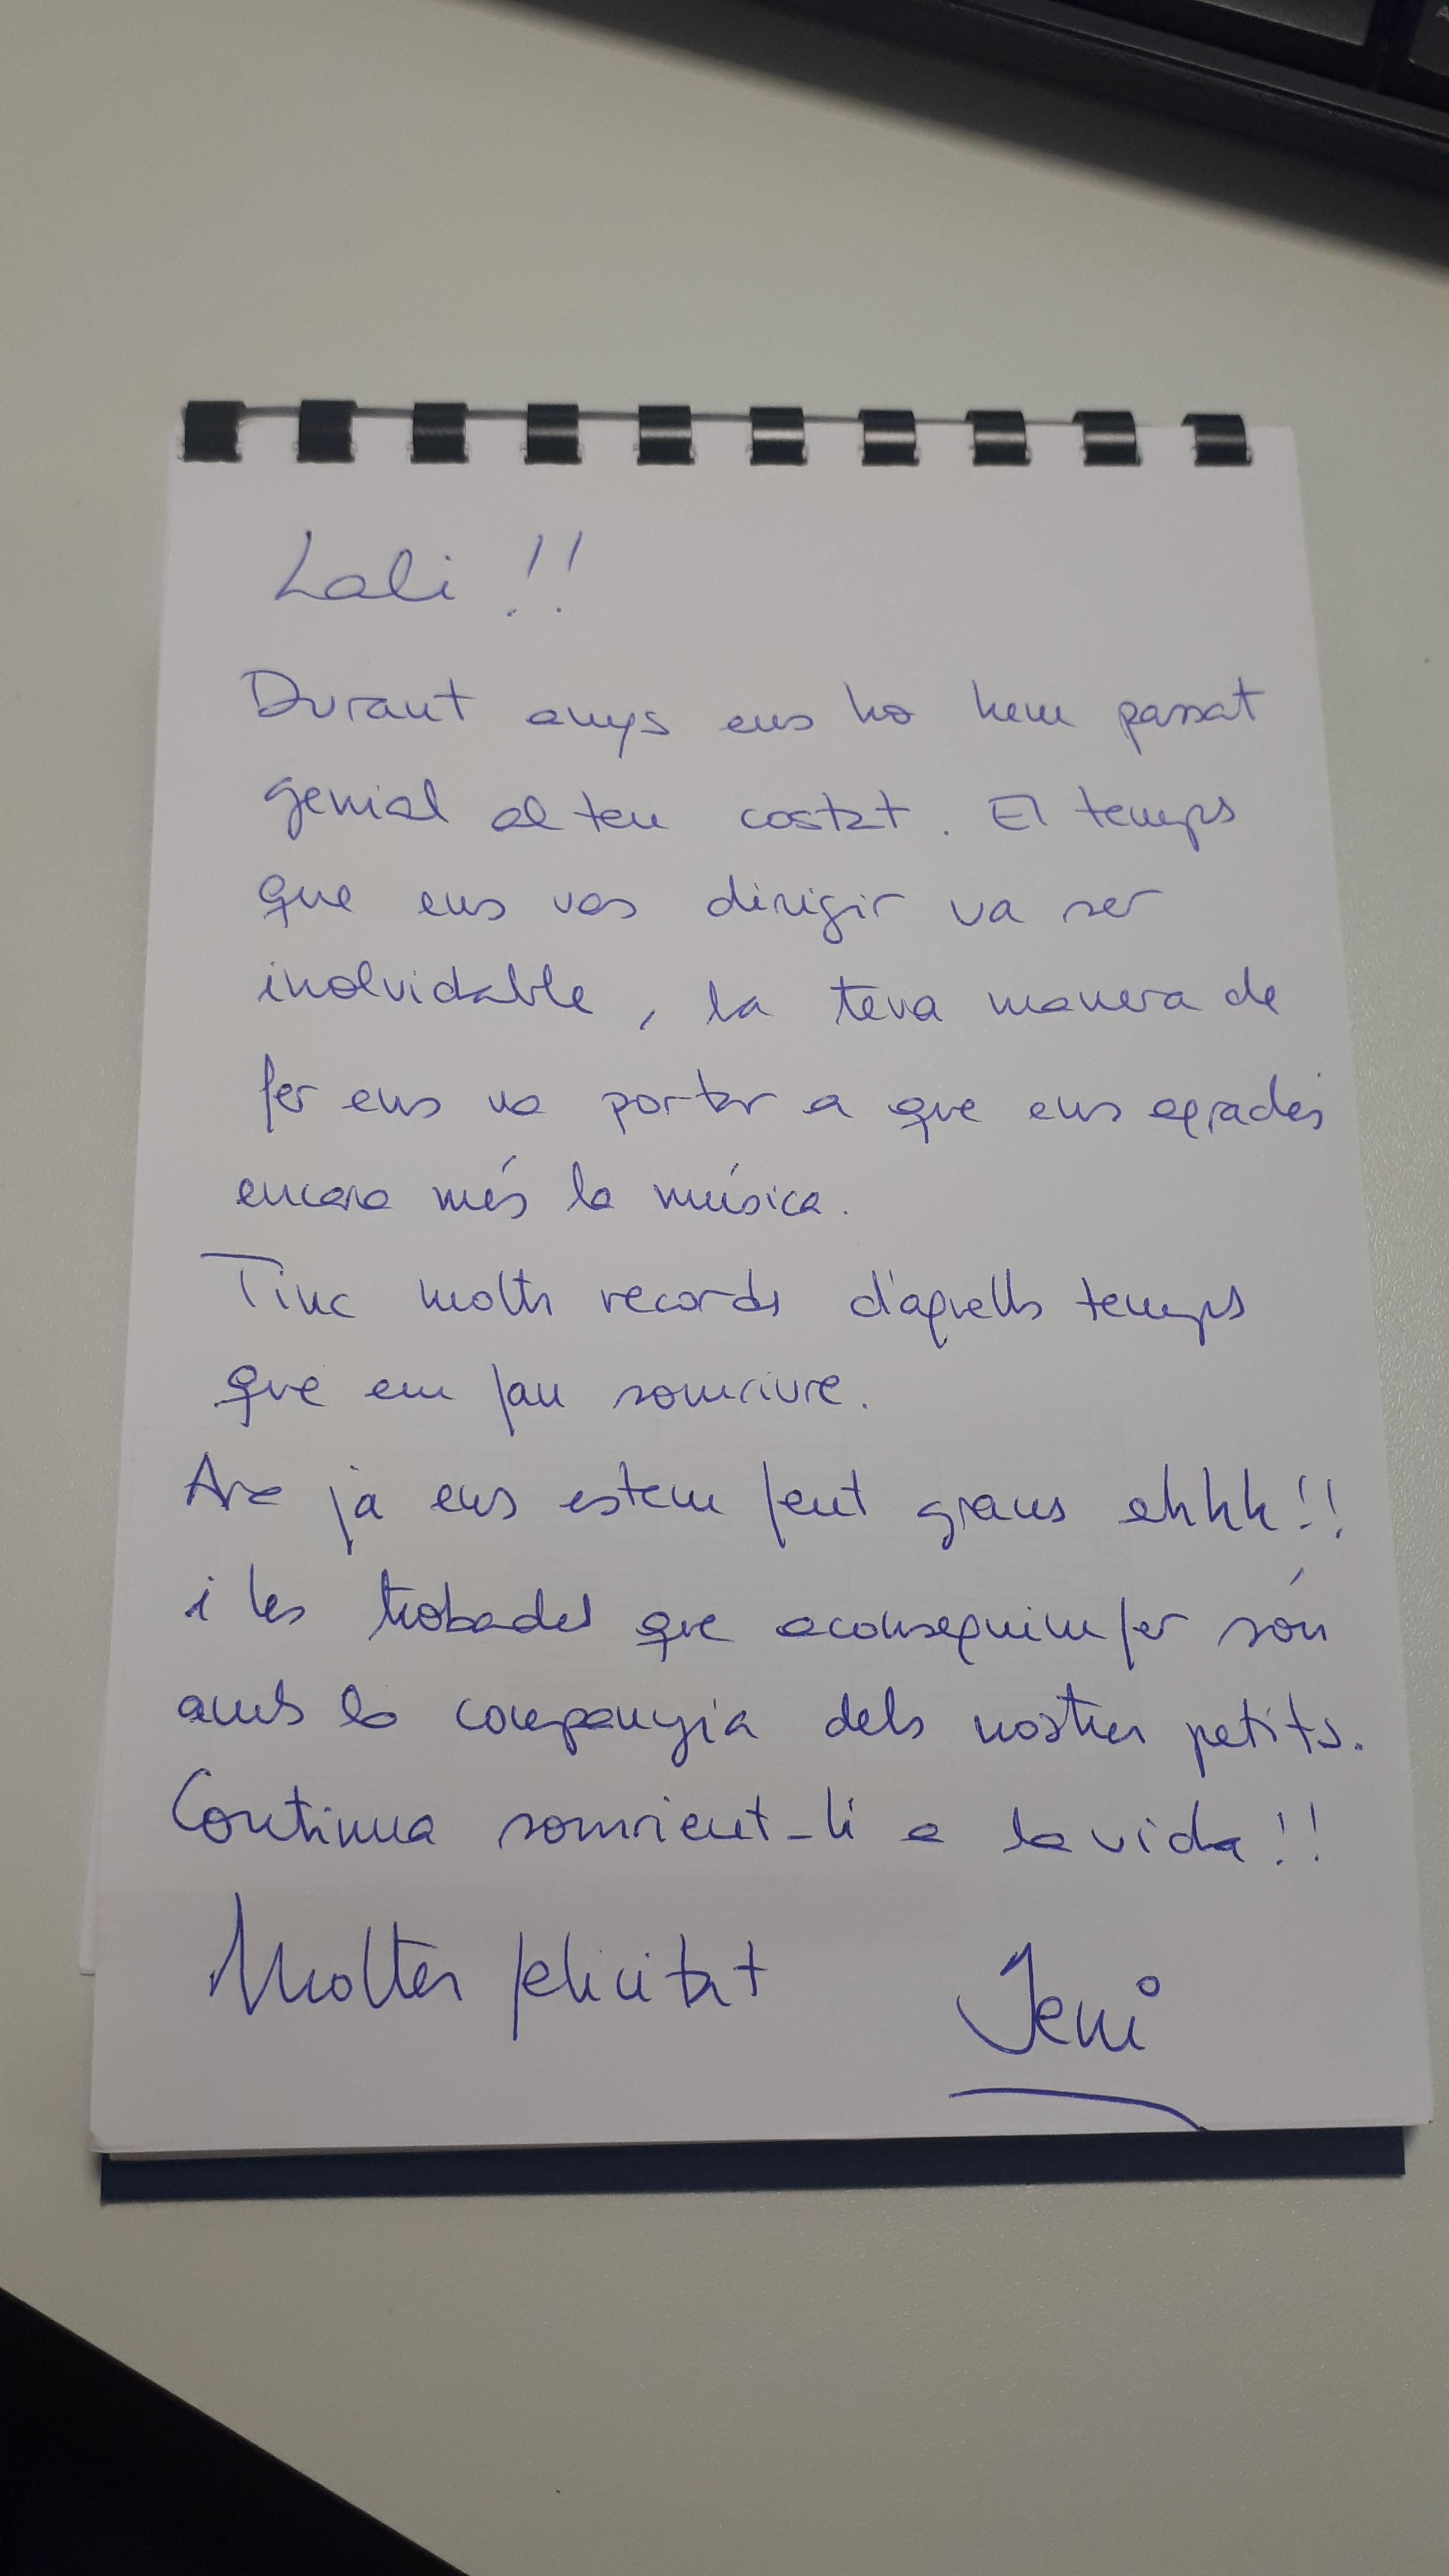 Lali !!
Durant anys ens ho hem passat
genial al teu costat. El temps
que ens vas dirigir va ser
inolvidable, la teva manera de
fer ens va portar a que ens agradés
encara més la música.
Tinc molts records d'aquells temps
que em fan somriure.
Ara ja ens estem fent grans ehhh!!
i les trobades que aconseguim fer són
amb la companyia dels nostres petits.
Continua somrient-li a la vida!!
Moltes felicitat
Jeni